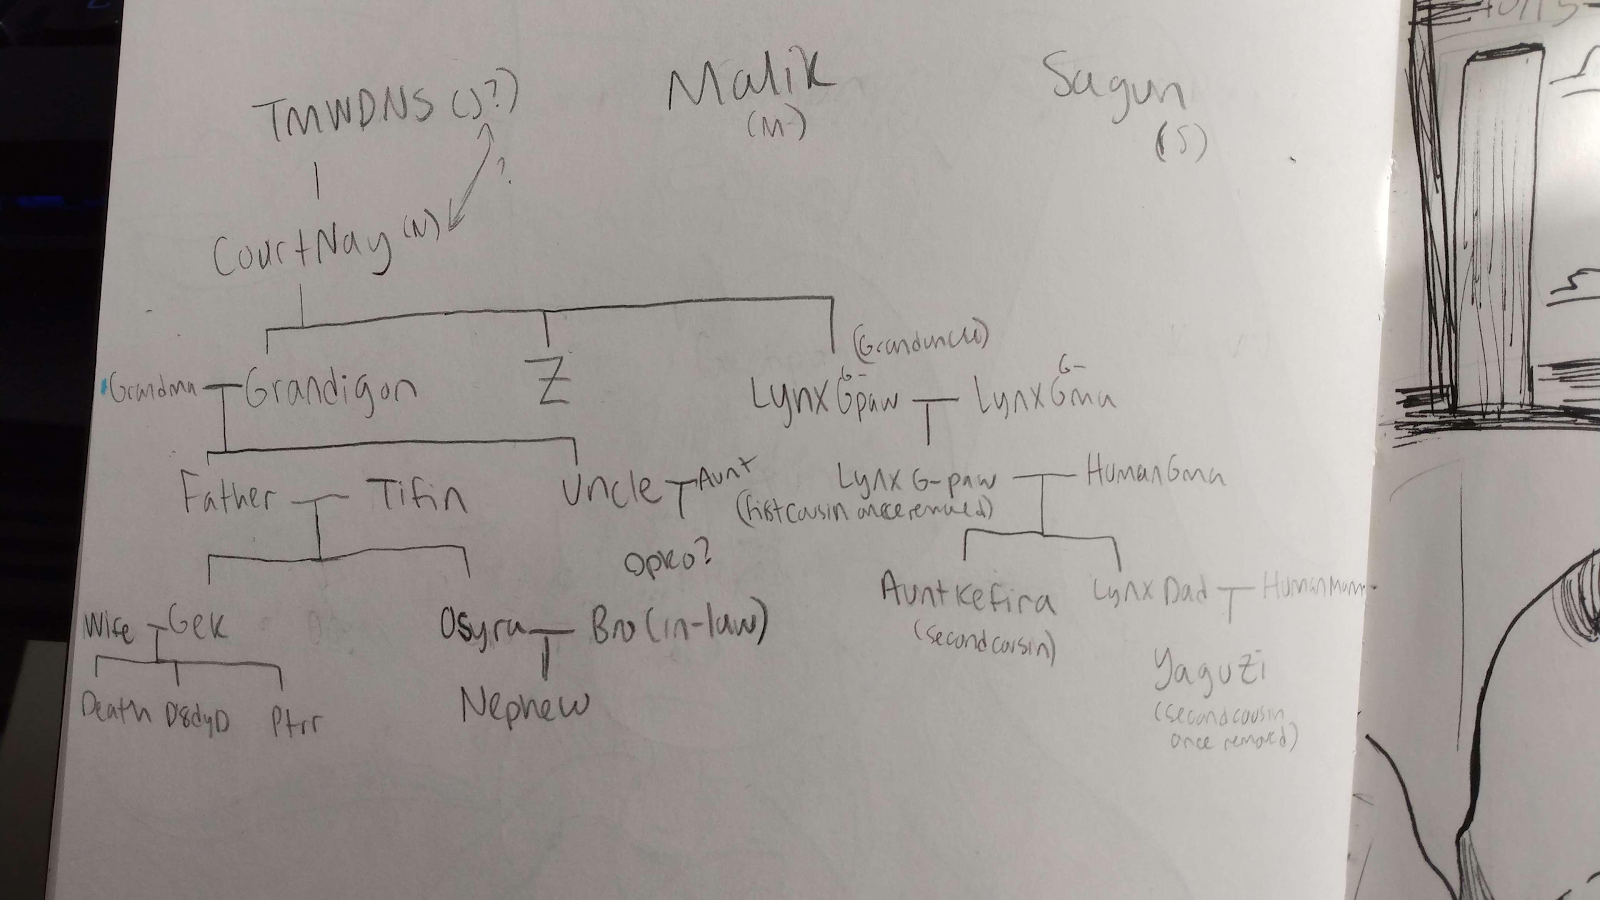 TMWDNS (J?) Malik Sagun
(M) (S)
?
CourtNay (N)
(Granduncle)
Grandma Grandigon Z Lynx G-Gpaw Lynx G-Gma
Father Tifin Uncle Aunt Lynx G-paw Human Gma
(first cousin once removed)
Opko?
Aunt Kefira Lynx Dad Human Mom
Wife Gek Osyra Bro (in-law) (second cousin)
Yaguzi
Death D8dyD Ptrr Nephew (second cousin
once removed)